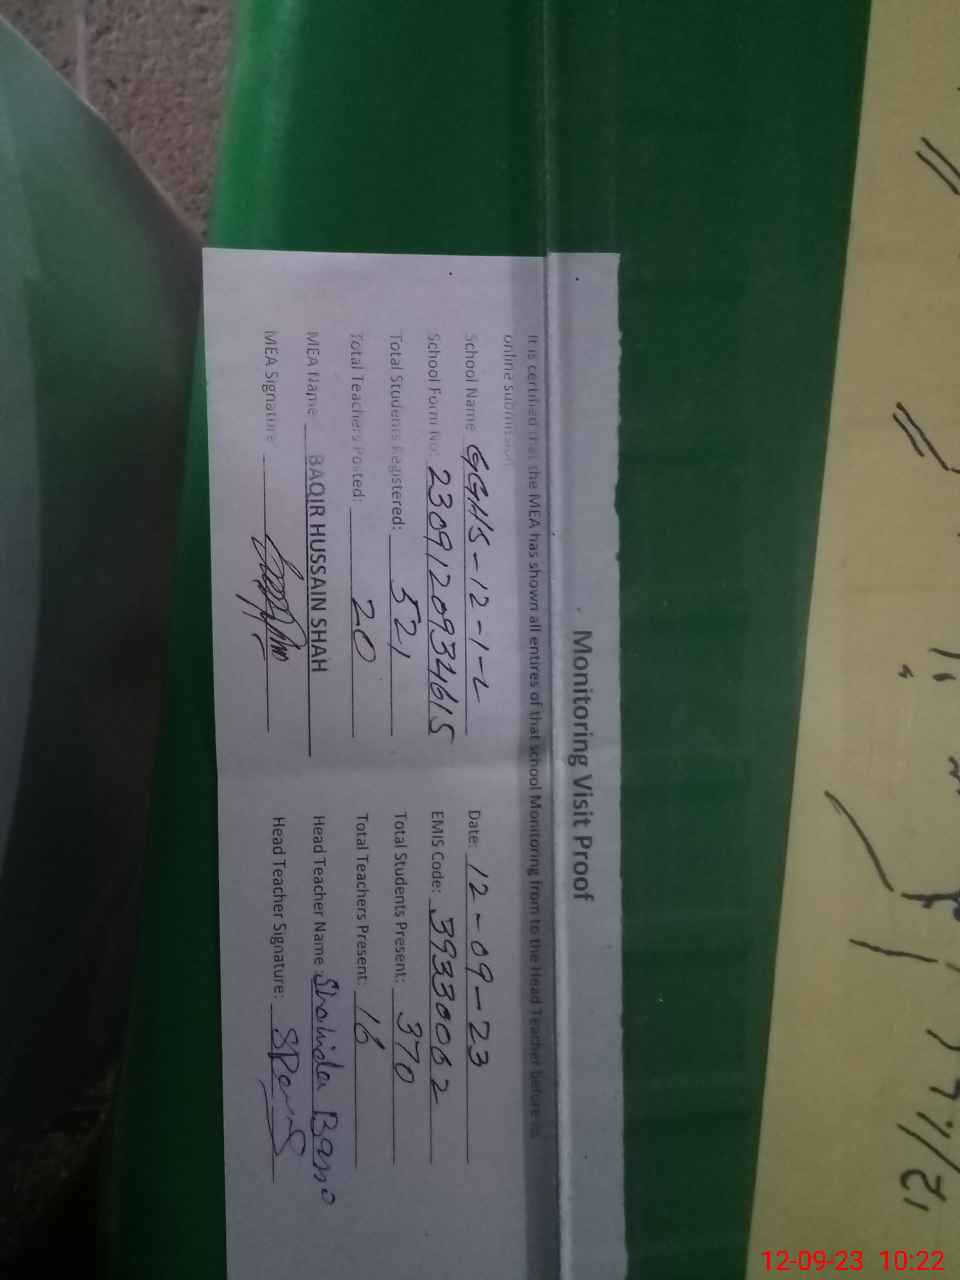 Monitoring Visit Proof
It is certified that the MEA has shown all entires of that school Monitoring from to the Head Teacher before its
online submission
School Name GGHS-12-1-L Date: 12-09-23
School Form No: 230912093461S EMIS Code: 39330062
Total Students Registered: 521 Total Students Present: 370
Total Teachers Posted: 20 Total Teachers Present: 16
MEA Name: BAQIR HUSSAIN SHAH Head Teacher Name: Shahida Bano
MEA Signature Head Teacher Signature:
12-09-23 10:22